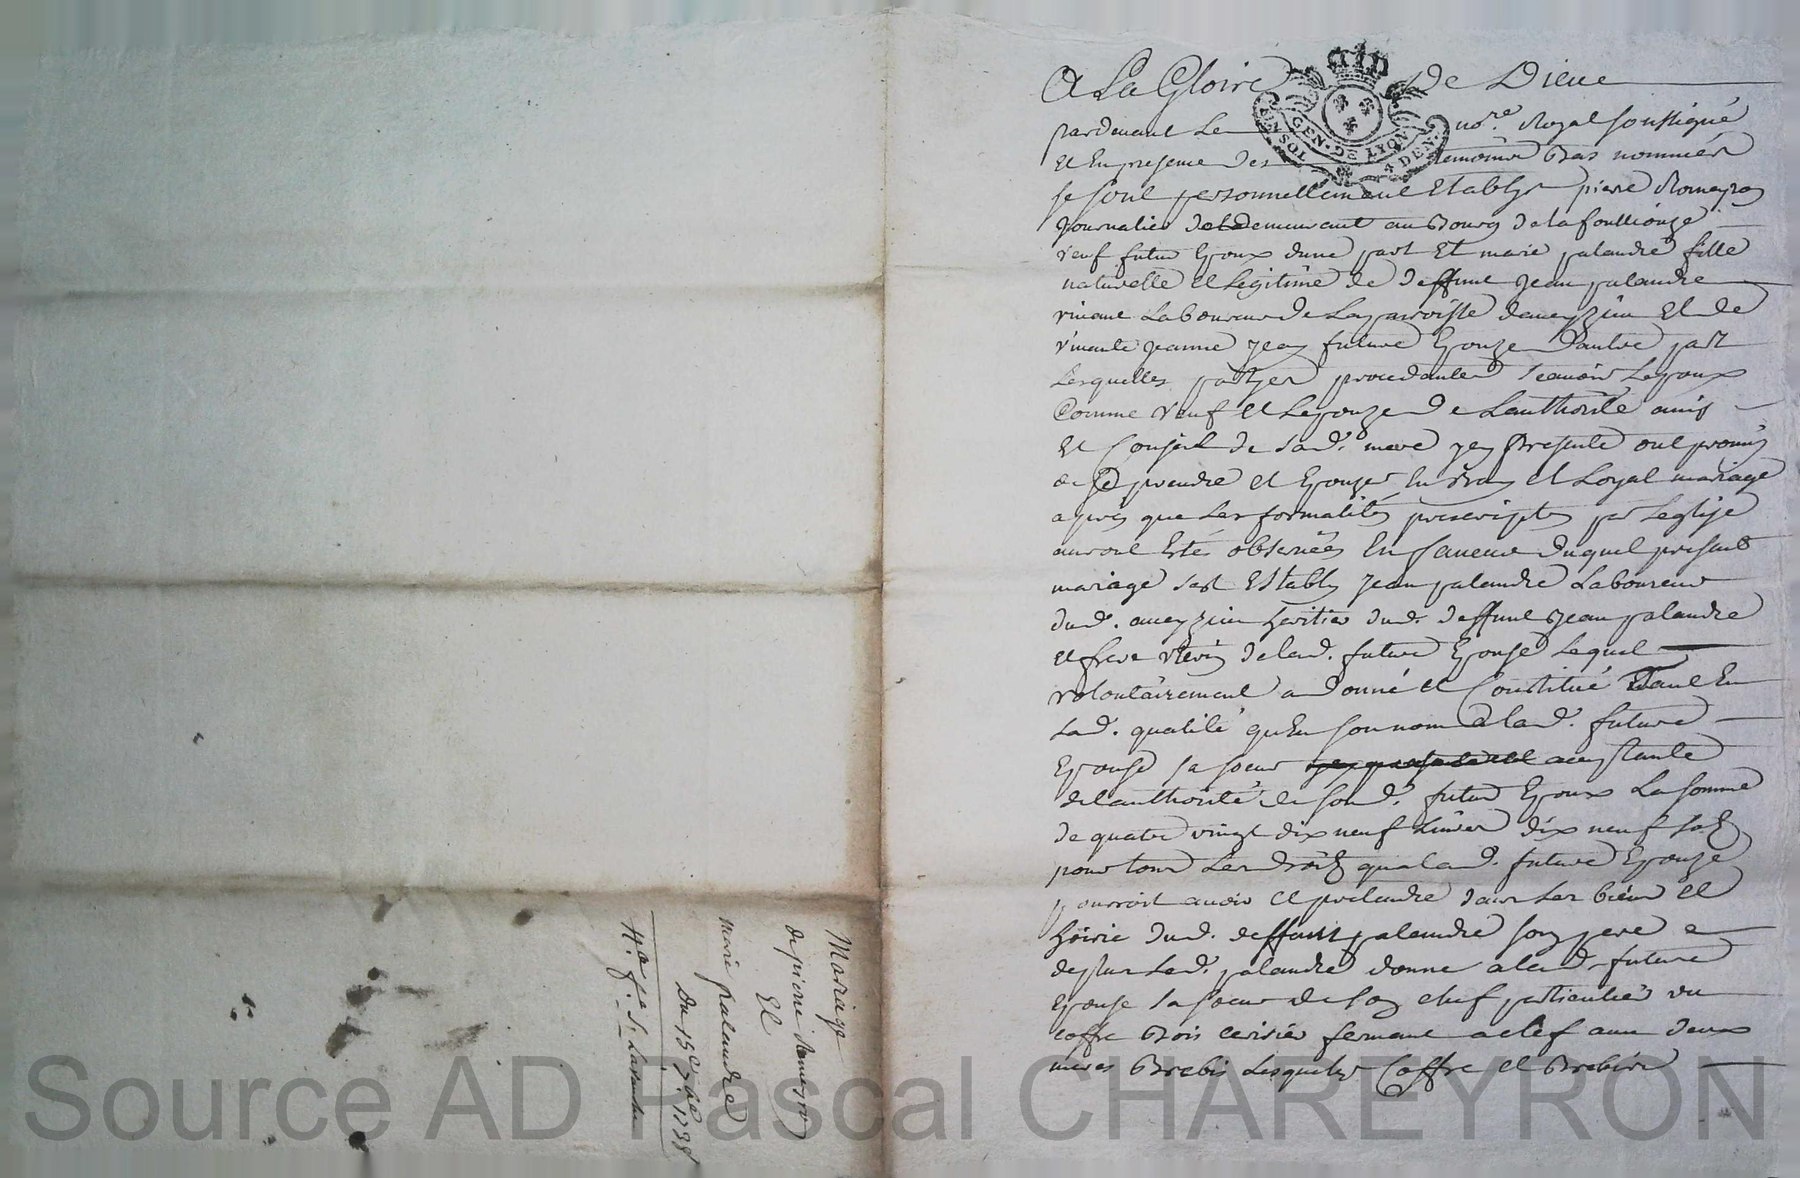 A La Gloire de Dieue
pardevant Le no.re Royal soussigné
et En presence des temoins Bas nommés
se sont personnellement Etablys piere Romeyron
Journalier demeurant au Bourg de la fouillouze
veuf futur Epoux dune part Et marie palandre fille
naturelle et Legitime de deffunt Jean palandre
vivant Laboureur de La parroisse daveyzieu Et de
vivante Jeanne futture Epouze Dautre part
Lesquelles partyes procedantes scavoir Lepoux
Comme veuf et Lepouze de Lauthorité avis
Et Conseil de sad. mere presente ont promis
de se prendre et Epouzer En vray et Loyal mariage
apres que Les formalités prescriptes par Leglise
auront Estés observées En faveur duquel present
mariage sest Estably Jean palandre Laboureur
dud. aveyzieu heritier dud. deffunt Jean palandre
et frere de lad. future Epouse Lequel
volontairement a donné et Constitué Tant En
sad. qualité quEn son nom a lad. future
Epouse sa soeur acceptante
de lauthorité de sond. futur Epoux La somme
de quatre vingt dix neuf Livres dix neuf sols
pour tous Les droits que lad. future Epouze
pourroit avoir et pretandre dans Les biens et
hoirie dud. deffunt palandre son pere e
deplus Led. palandre donne a lad. future
Epouse sa soeur de son chef particulier un
coffre Bois cerisier fermant a clef avec deux
meres Brebis Lesquels Coffre et Brebis
GEN. DE LYON
4 DEN.
Mariage
de piere Romeyron
Et
Marie palandre
Du 15e 7bre 1738
Source AD Pascal CHAREYRON